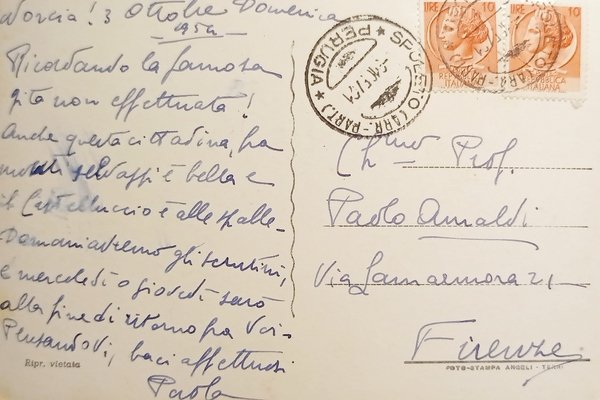 Norcia! 3 Ottobre Domenica
1954
Ricordando la famosa
gita non effettuata!
Anche questa cittadina, fra
monti selvaggi è bella e
il Castelluccio è alle spalle.
Domani avremo gli scrutini,
e mercoledì o giovedì sarò
alla fine di ritorno fra Voi.
PensandoVi, baci affettuosi
Paola
Ripr. vietata
SPOLETO (ARR.-PART.)
* PERUGIA *
LIRE 10
REPUBBLICA
ITALIANA
LIRE 10
REPUBBLICA
ITALIANA
Ch.mo Prof.
Paolo Arnaldi
Via Lamarmora 21
Firenze
FOTO-STAMPA ANGELI - TERNI